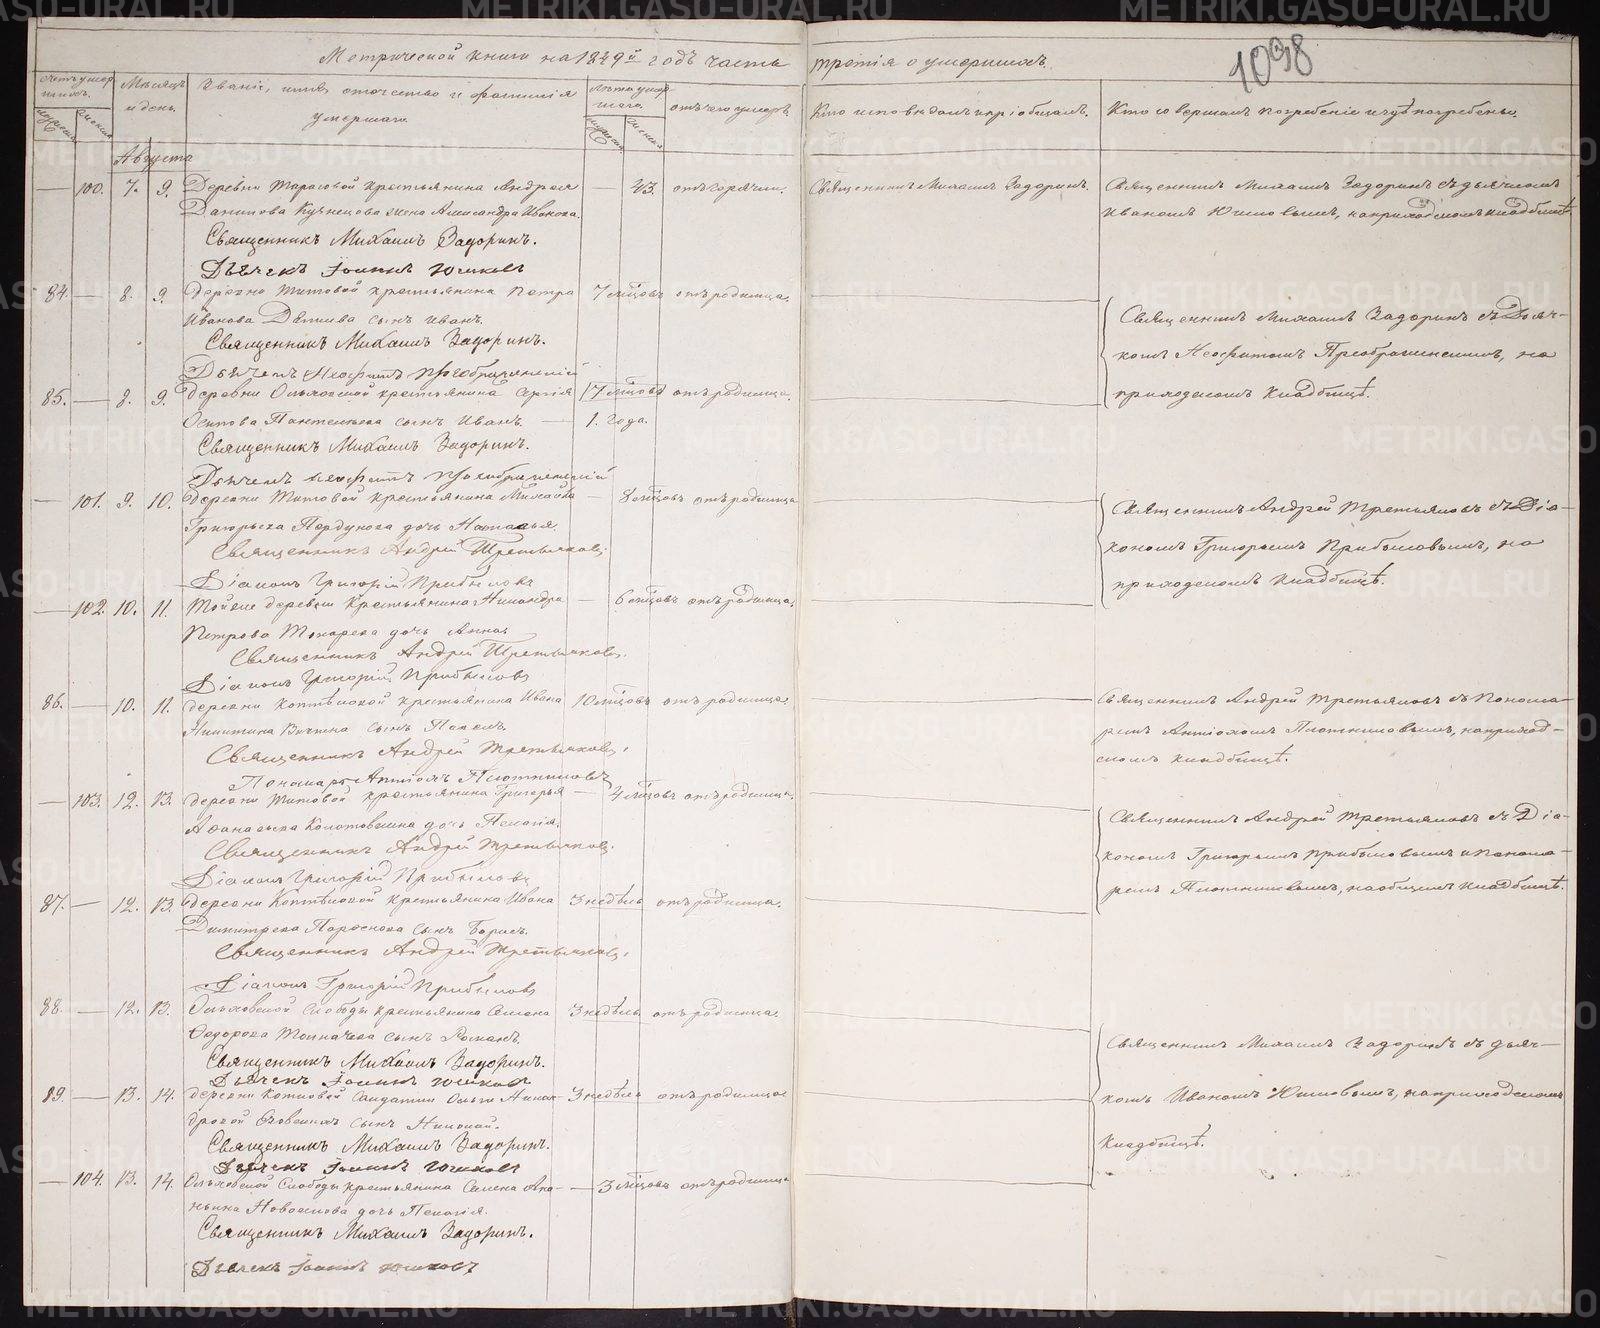 Метрической книги на 1849й годъ часть третія о умершихъ.
1098
Счетъ умерших.
мужеск.
женск.
Мѣсяцъ и день.
Званіе, имя, отечество и фамилія умершаго.
Лѣта умершаго.
мужеск.
женск.
отъ чего умеръ.
Кто исповѣдалъ и пріобщалъ.
Кто совершалъ погребеніе и гдѣ погребены.
Августа
— 100. 7. 9. Деревни Тарасовой крестьянина Андрея — 43. отъ горячки. Священникъ Михаилъ Задоринъ. Священникъ Михаилъ Задоринъ съ дьячкомъ
Данилова Кузнецова жена Александра Иванова. Иваномъ Юшковымъ, на приходскомъ кладбищѣ.
Священникъ Михаилъ Задоринъ.
Дьячекъ Іоаннъ Юшковъ
84. — 8. 9. Деревни Титовой крестьянина Петра 7 мѣсцовъ отъ родимца.
Иванова сынъ Иванъ. Священникъ Михаилъ Задоринъ съ Дьяч-
Священникъ Михаилъ Задоринъ. комъ Неофитомъ Преображенскимъ, на
Дьячекъ Неофитъ Преображенскій приходскомъ кладбищѣ.
85. — 8. 9. Деревни Ольховской крестьянина Сергія 7 мѣсцовъ отъ родимца.
Осипова Пантелеева сынъ Иванъ. — 1. года.
Священникъ Михаилъ Задоринъ.
Дьячекъ Неофитъ Преображенскій
— 101. 9. 10. Деревни Титовой крестьянина Михайла — 8 мѣсцовъ отъ родимца
Григорьева Пердунова дочь Наталья. Священникъ Андрей Третьяковъ съ Діа-
Священникъ Андрей Третьяковъ. кономъ Григорьемъ Прибыловымъ, на
Діаконъ Григорій Прибыловъ приходскомъ кладбищѣ.
— 102. 10. 11. Той же деревни крестьянина Никандра — 6 мѣсцовъ отъ родимца.
Петрова Токарева дочь Анна.
Священникъ Андрей Третьяковъ.
Діаконъ Григорій Прибыловъ
86. — 10. 11. Деревни крестьянина Ивана 10 мѣсцовъ отъ родимца. Священникъ Андрей Третьяковъ съ Понома-
Никитина сынъ Павелъ. ремъ Антіохомъ Плотниковымъ, на приход-
Священникъ Андрей Третьяковъ. скомъ кладбищѣ.
Пономарь Антіохъ Плотниковъ
— 103. 12. 13. Деревни Титовой крестьянина Григорья — 4 мѣсцовъ отъ родимца.
Афанасьева Колотовкина дочь Пелагія. Священникъ Андрей Третьяковъ съ Діа-
Священникъ Андрей Третьяковъ. кономъ Григорьемъ Прибыловымъ и Понома-
Діаконъ Григорій Прибыловъ ремъ Плотниковымъ, на общемъ кладбищѣ.
87. — 12. 13. Деревни крестьянина Ивана 3 недѣль отъ родимца.
Димитрева сынъ Борисъ.
Священникъ Андрей Третьяковъ.
Діаконъ Григорій Прибыловъ
88. — 12. 13. Ольховской Слободы крестьянина Семена 3 недѣль отъ родимца.
Федорова Толмачева сынъ Романъ. Священникъ Михаилъ Задоринъ съ дьяч-
Священникъ Михаилъ Задоринъ. комъ Иваномъ Юшковымъ, на приходскомъ
Дьячекъ Іоаннъ Юшковъ кладбищѣ.
89. — 13. 14. Деревни Солдатки Ольги 3 недѣль отъ родимца
сынъ Николай.
Священникъ Михаилъ Задоринъ.
Дьячекъ Іоаннъ Юшковъ
— 104. 13. 14. Ольховской Слободы крестьянина Семена Ана- — 3 мѣсцовъ отъ родимца
ньина Новоселова дочь Пелагія.
Священникъ Михаилъ Задоринъ.
Дьячекъ Іоаннъ Юшковъ
METRIKI.GASO-URAL.RU